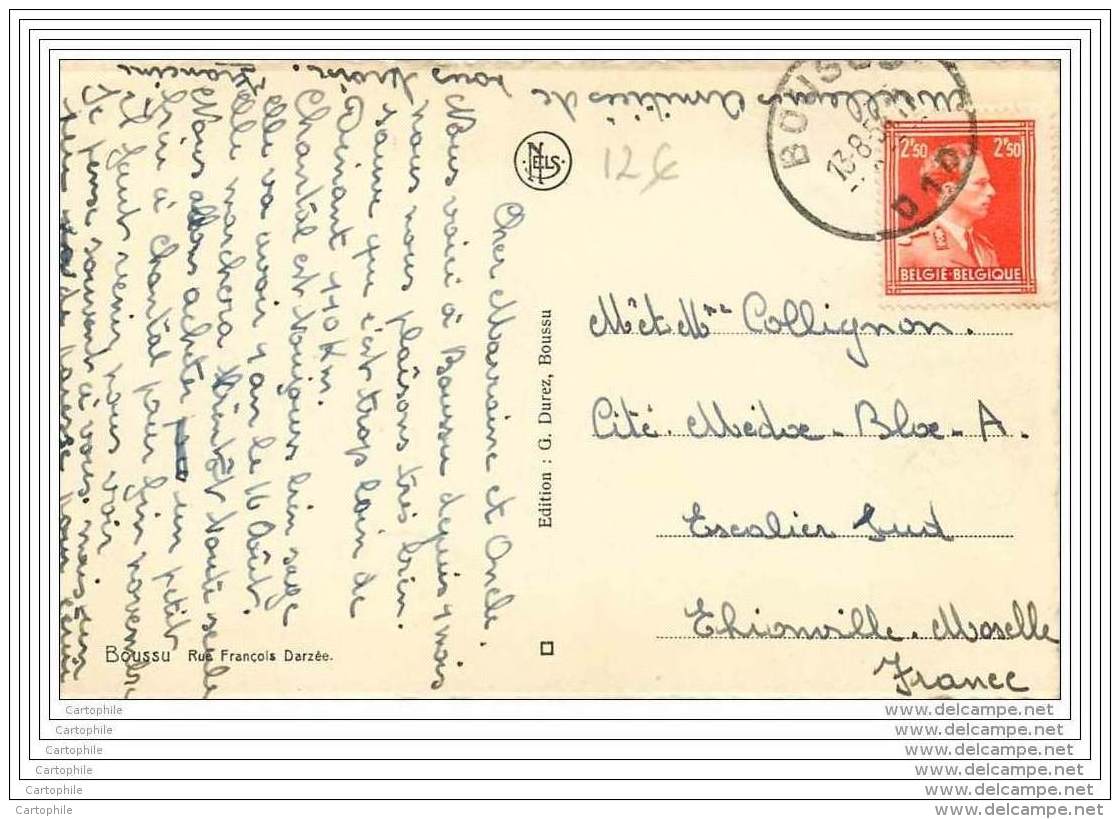 Cher Marraine et Oncle.
Nous voici à Boussu depuis 1 mois
nous nous plaisons très bien.
que c'est trop loin de
Dinant 110 Km.
Chantal est toujours bien sage
elle va avoir 1 an le 16 Août.
elle marchera bientôt toute seule
Nous allons acheter un petit
à Chantal pour fin novembre
Il faut venir nous voir
Je pense souvent à vous. mais
de paresse pour écrire
Meilleures Amitiés de
nous trois.
Francine
NELS
12€
Edition : G. Durez, Boussu
Boussu Rue François Darzée.
BOUSSU
13-8-5
D1D
2.50 2.50
BELGIË-BELGIQUE
Mr et Mme Collignon.
Cité. Médoc-Bloc-A.
Escalier Sud
Thionville. Moselle
France
Cartophile www.delcampe.net
Cartophile www.delcampe.net
Cartophile www.delcampe.net
Cartophile www.delcampe.net
Cartophile www.delcampe.net
Cartophile www.delcampe.net